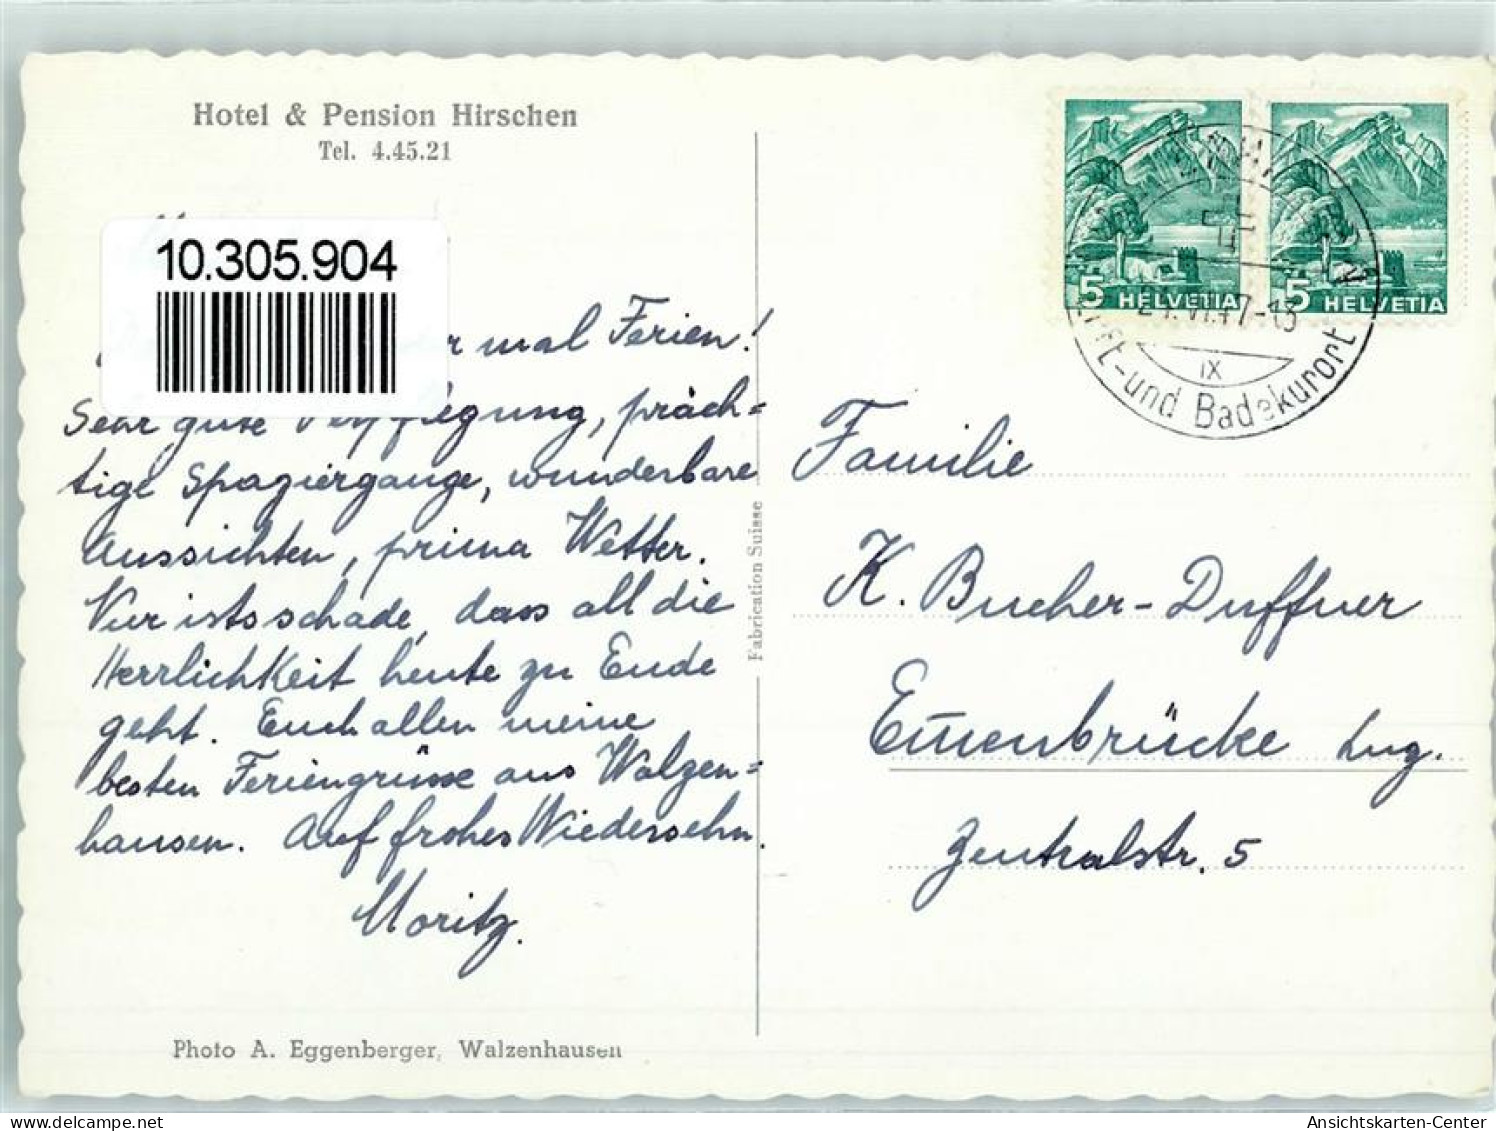 Hotel & Pension Hirschen
Tel. 4.45.21
10.305.904
mal Ferien!
Sehr gute Verpflegung, präch=
tige Spaziergänge, wunderbare
Aussichten, prima Wetter.
Nur ists schade, dass all die
Herrlichkeit heute zu Ende
geht. Euch allen meine
besten Feriengrüsse aus Walzen=
hausen. Auf frohes Wiedersehn.
Moritz.
Photo A. Eggenberger, Walzenhausen
Fabrication Suisse
5 HELVETIA
5 HELVETIA
IX
Luft-und Badekurort
Familie
K. Bucher-Duffner
Emmenbrücke Luz.
Zentralstr. 5
Ansichtskarten-Center